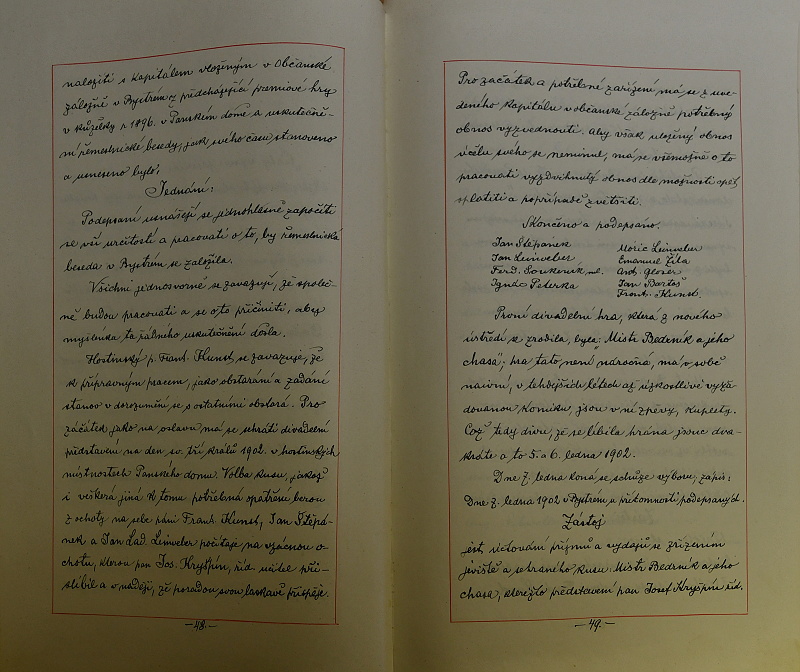 naložiti s kapitálem vloženým v Občanské
záložně v Bystrém z předcházející premiové hry
v kuželky r. 1896. v Panském domě a uskutečně-
ní řemeslnické besedy, jak svého času stanoveno
a usneseno bylo.
Jednání:
Podepsaní usnášejí se jednohlasně započíti
se vší určitostí a pracovati o to, by řemeslnická
beseda v Bystrém se založila.
Všichni jednosvorně se zavazují, že společ-
ně budou pracovati a se o to přičiniti, aby
myšlénka ta zdárného uskutečnění došla.
Hostinský p. Frant. Kunst, se zavazuje, že
k přípravným pracem, jako obstarání a zadání
stanov v dorozumění se s ostatními obstará. Pro
začátek jako na oslavu má se sehráti divadelní
představení na den sv. tří králů 1902. v hostinských
místnostech Panského domu. Volba kusu, jakož
i veškerá jiná k tomu potřebná opatření berou
z ochoty na sebe páni Frant. Kunst, Jan Štěpá-
nek a Jan Lad. Leinveber počítaje na vzácnou o-
chotu, kterou pan Jos. Kryšpín, říd. učitel při-
slíbil a v naději, že poradou svou laskavě přispěje.
-48.-
Pro začátek a potřebné zařízení má se z uve-
deného kapitálu v občanské záložně potřebný
obnos vyzvednouti. Aby však uložený obnos
účelu svého se neminul, má se všemožně o to
pracovati vyzdvihnutý obnos dle možnosti opět
splatiti a popřípadě zvětšiti.
Skončeno a podepsáno.
Jan Štěpánek Moric Leinveber
Jan Leinveber Emanuel Žila
Ferd. Soukeník ml. Ant. Gloser
Ignác Peterka Jan Bartoš
Frant. Kunst.
První divadelní hra, která z nového
ústředí se zrodila, byla: "Mistr Bedrník a jeho
chasa"; hra tato, není náročná, má v sobě
naivní, v tehdejších létech až úzkostlivě vyžá-
dovanou komiku, jsou v ní zpěvy, kuplety.
Což tedy divu, že se líbila hrána jsouc dva-
kráte a to 5. a 6. ledna 1902.
Dne 7. ledna koná se schůze výboru, zápis:
Dne 7. ledna 1902 v Bystrém u přítomnosti podepsaných.
jest účtování příjmů a vydajů se zřízením
jeviště a sehraného kusu: Mistr Bedrník a jeho
chasa, kterežto představení pan Josef Kryšpín říd.
-49.-